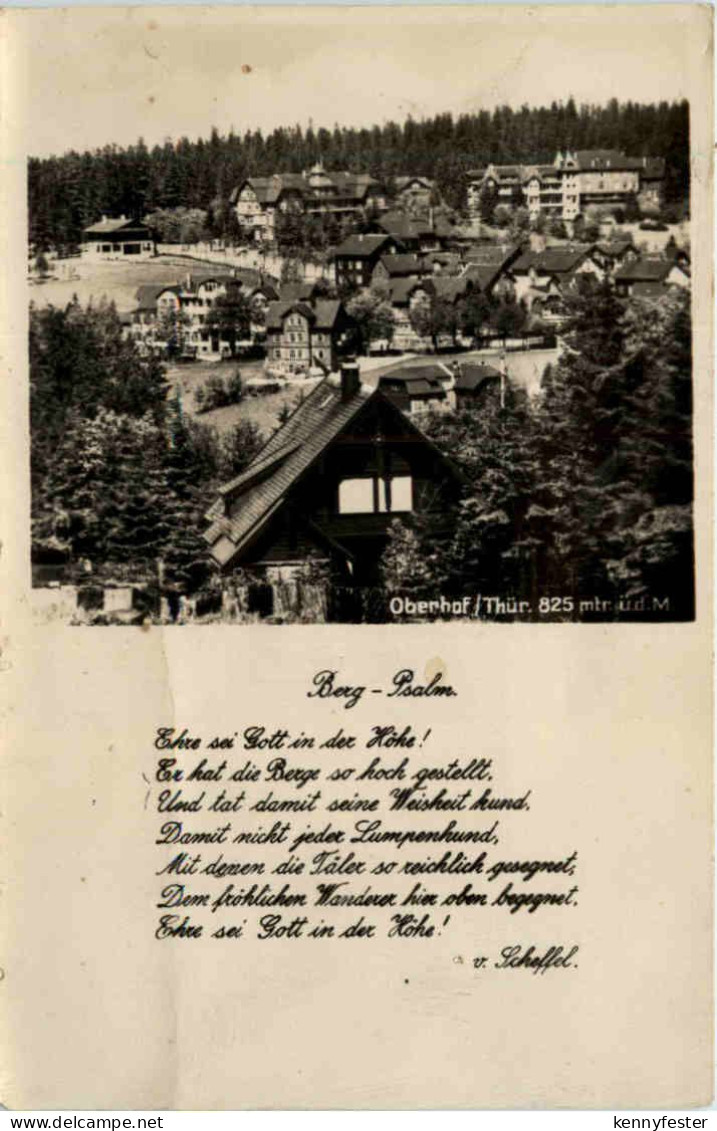 Oberhof/Thür. 825 mtr. ü.d.M
Berg - Psalm.
Ehre sei Gott in der Höhe!
Er hat die Berge so hoch gestellt,
Und tat damit seine Weisheit kund,
Damit nicht jeder Lumpenhund,
Mit denen die Täler so reichlich gesegnet,
Dem fröhlichen Wanderer hier oben begegnet.
Ehre sei Gott in der Höhe!
v. Scheffel.
www.delcampe.net
kennyfester